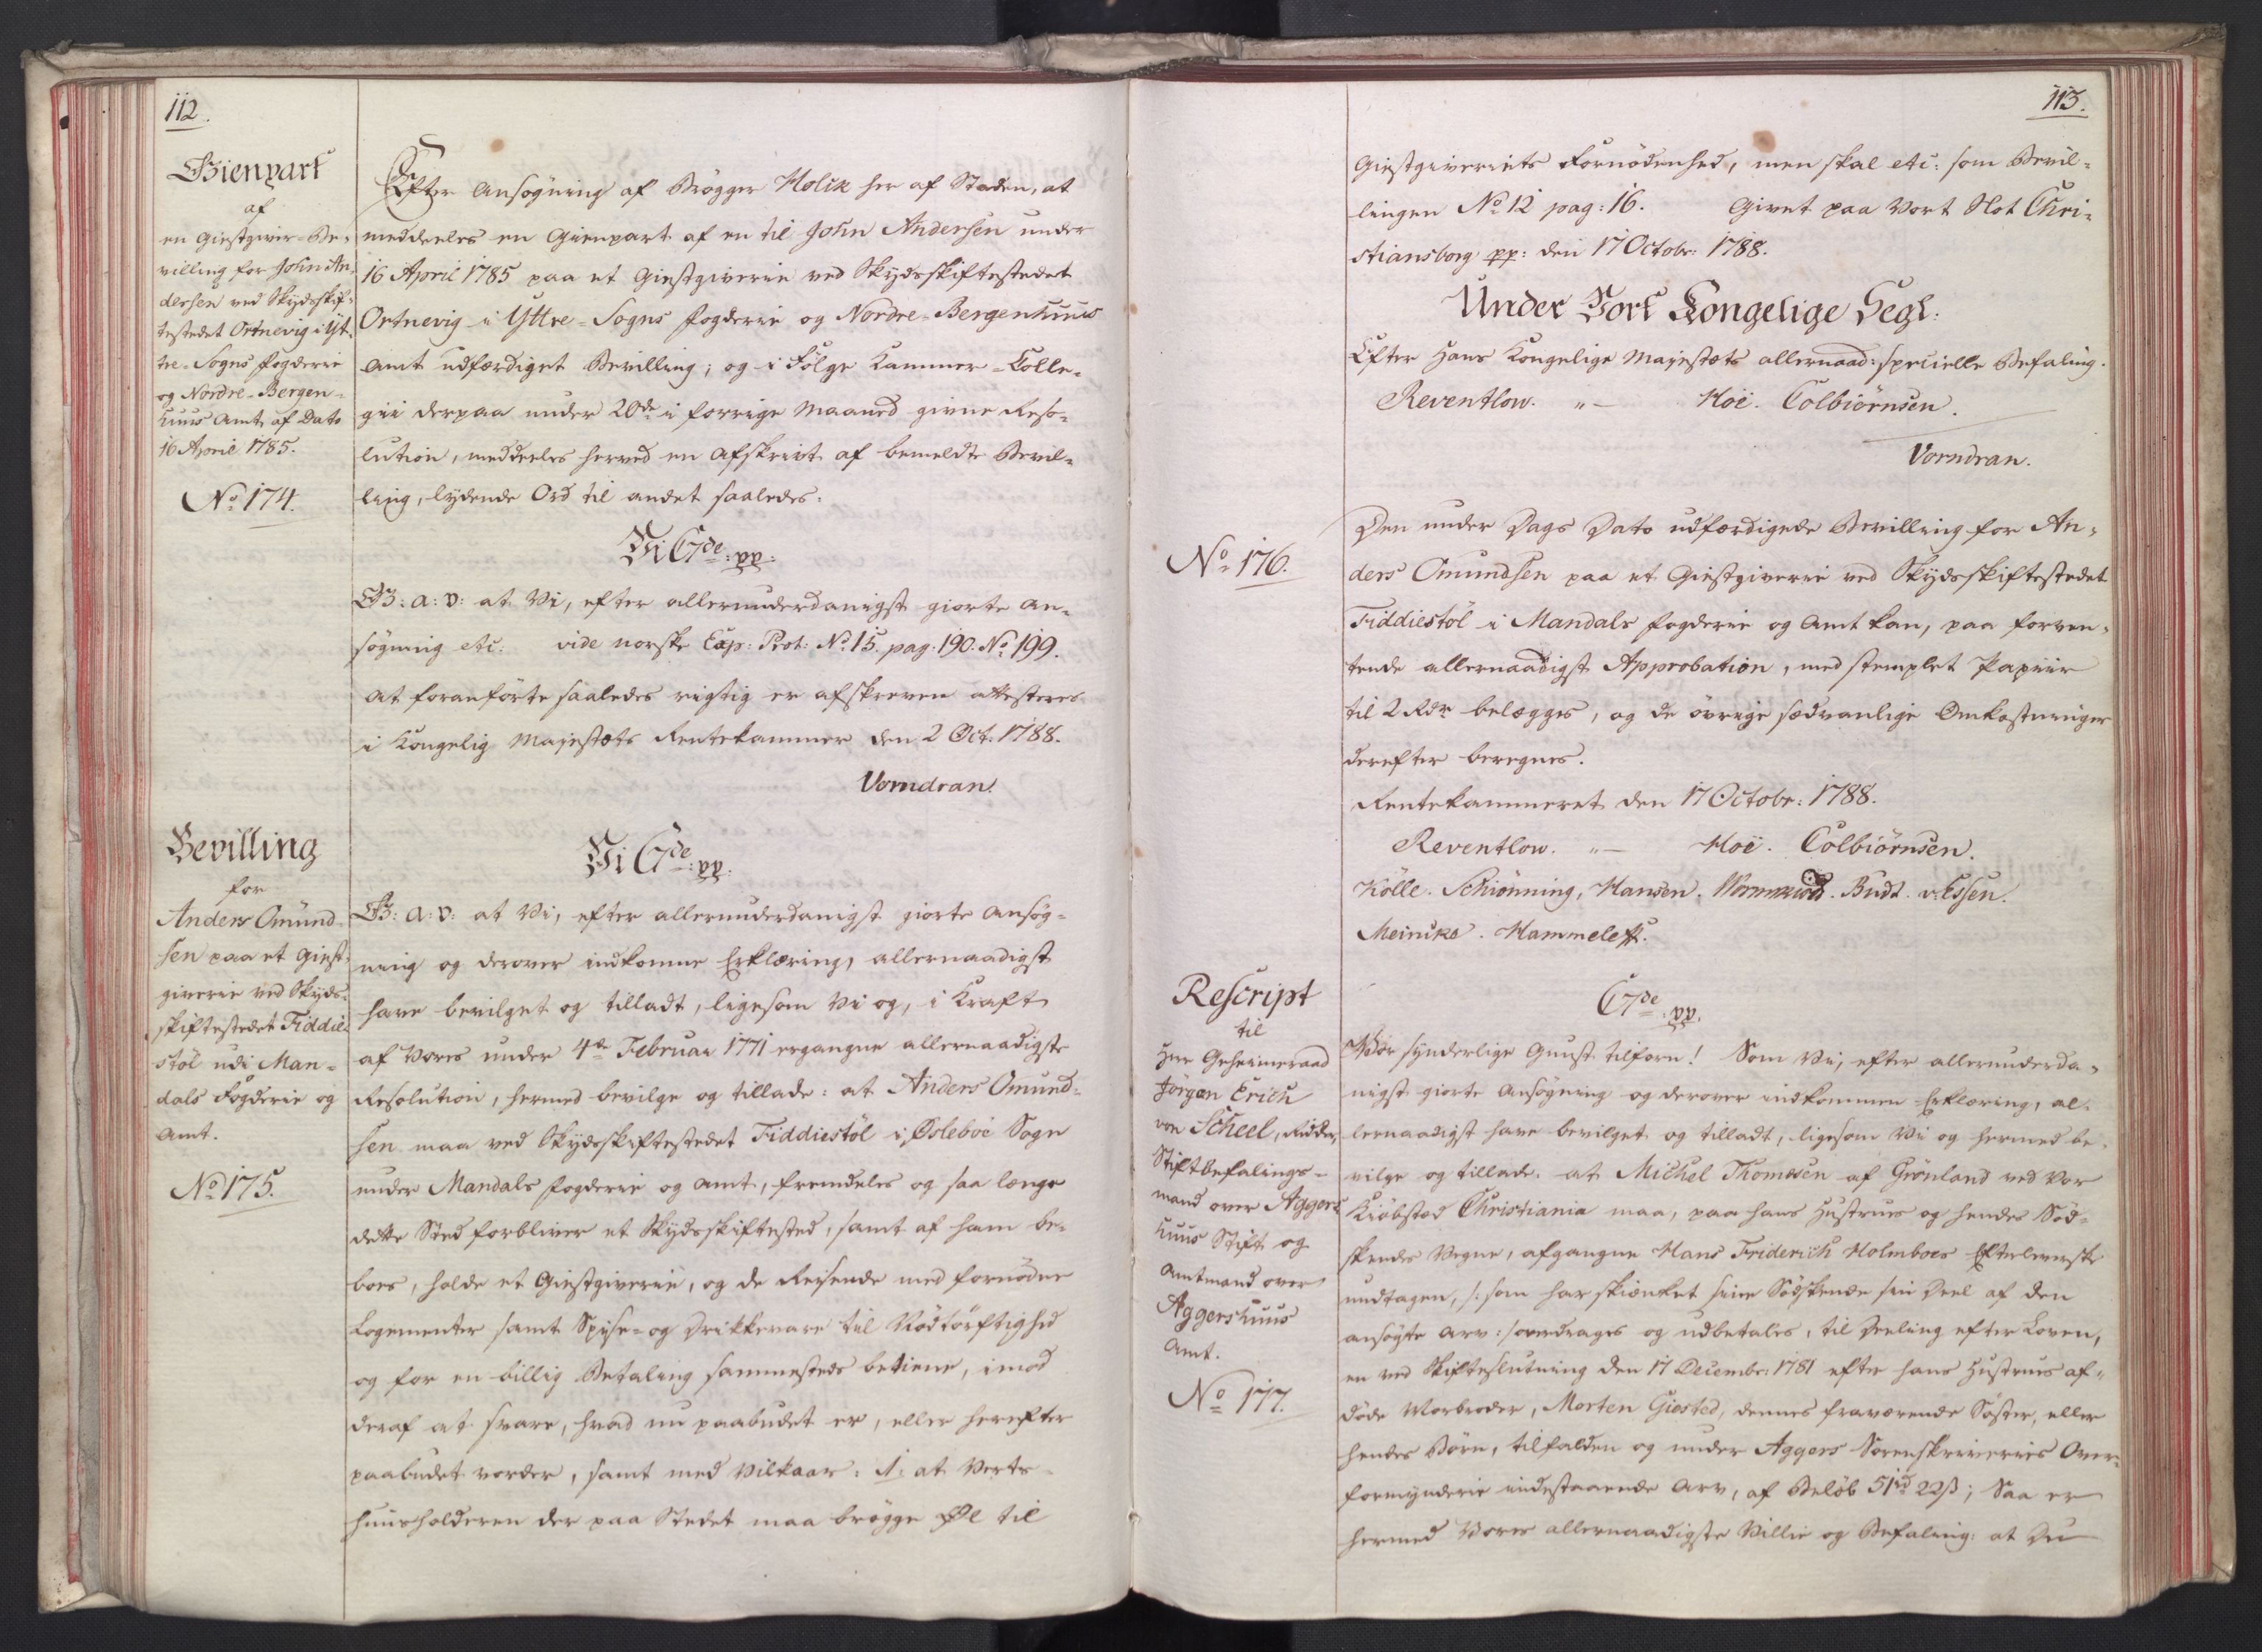 112.
Gienpart
af
en Giestgiver-Be-
villing for John An-
dersen ved Skydsskif-
testedet Ortnevig i Yt-
tre-Sogns Fogderie
og Nordre-Bergen-
huus Amt af Dato
16 April 1785.
No 174.
Efter Ansøgning af Brøgger Holck her af Staden, at
meddeeles en Gienpart af en til John Andersen under
16 April 1785 paa et Giestgiverie ved Skydsskiftestedet
Ortnevig i Yttre-Sogns Fogderie og Nordre-Bergenhuus
Amt udfærdiget Bevilling; og i Følge Kammer-Colle-
gii derpaa under 20de i forrige Maaned givne Reso-
lution, meddeeles herved en Afskrivt af bemeldte Bevil-
ling, lydende Ord til andet saaledes:
Vi C7de: pp:
G: A: V: at Vi, efter allerunderdanigst giorte An-
søgning etc: vide norske Exp: Prot: No 15. pag: 190. No 199.
At foranførte saaledes rigtig er afskreven attesteres
i Kongelig Majestæts Rentekammer den 2 Oct. 1788.
Vorndran.
Bevilling
for
Anders Omund-
sen paa et Giest-
giverie ved Skyds-
skiftestedet Fiddie-
støl udi Man-
dals Fogderie og
Amt.
No 175.
Vi C7de: pp:
G: A: V: at Vi, efter allerunderdanigst giorte Ansøg-
ning og derover indkomne Erklæring, allernaadigst
have bevilget og tilladt, ligesom Vi og, i Kraft
af Vores under 4de Februar 1771 ergangne allernaadigste
Resolution, hermed bevilge og tillade: at Anders Omund-
sen maa ved Skydsskiftestedet Fiddiestøl i Øsleboe Sogn
under Mandals Fogderie og Amt, fremdeles og saa længe
dette Sted forbliver et Skydsskiftested, samt af ham be-
boes, holde et Giestgiverie, og de Reisende med fornødne
Logementer samt Spise- og Drikkevare til Nødtørftighed
og for en billig Betaling sammesteds betiene, imod
deraf at svare, hvad nu paabudet er, eller herefter
paabudet vorder, samt med Vilkaar: 1: at Verts-
huusholderen der paa Stedet maa brøgge Øl til
113.
Giestgiveriets Fornødenhed, men skal etc: som Bevil-
lingen No 12 pag: 16. Givet paa Vort Slot Chri-
stiansborg pp: den 17 Octobr: 1788.
Under Vort Kongelige Segl.
Efter Hans Kongelige Majestæts allernaad: specielle Befaling.
Reventlow. „— Hoë. Colbiørnsen.
Vorndran.
No 176.
Den under Dags Dato udfærdigede Bevilling for An-
ders Omundsen paa et Giestgiverie ved Skydsskiftestedet
Fiddiestøl i Mandals Fogderie og Amt kan, paa forven-
tende allernaadigst Approbation, med stemplet Papiir
til 2 Rdr belægges, og de øvrige sædvanlige Omkostninger
derefter beregnes.
Rentekammeret den 17 Octobr: 1788.
Reventlow. „— Hoë. Colbiørnsen.
Kölle. Schiønning, Hansen. Wormwod. Budt. v. Essen.
Meincke. Hammeleff.
Rescript
til
Herr Geheimeraad
Jørgen Erich
von Scheel, Ridder,
Stiftbefalings-
mand over Aggers-
huus Stift og
Amtmand over
Aggershuus
Amt.
No 177.
C7de: pp.
Vor synderlige Gunst tilforn! Som Vi, efter allerunderda-
nigst giorte Ansøgning og derover indkommen Erklæring, al-
lernaadigst have bevilget og tilladt, ligesom Vi og hermed be-
vilge og tillade: at Michel Thomæsen af Grønland ved Vor
Kiøbsted Christiania maa, paa hans Hustrues og hendes Sød-
skendes Vegne, afgangne Hans Friderich Holmboes Efterleverske
undtagen, /: som har skiænket sine Sødskende sin Deel af den
ansøgte Arv :/ oversdrages og udbetales, til Deeling efter Loven,
en ved Skifteslutning den 17 Decembr: 1781 efter hans Hustrues af-
døde Morbroder, Morten Giested, dennes fraværende Søster, eller
hendes Børn, tilfalden og under Aggers Sorenskriveries Over-
formynderie indestaaende Arv, af Beløb 51rd 22ß; Saa er
hermed Vores allernaadigste Villie og Befaling: at Du